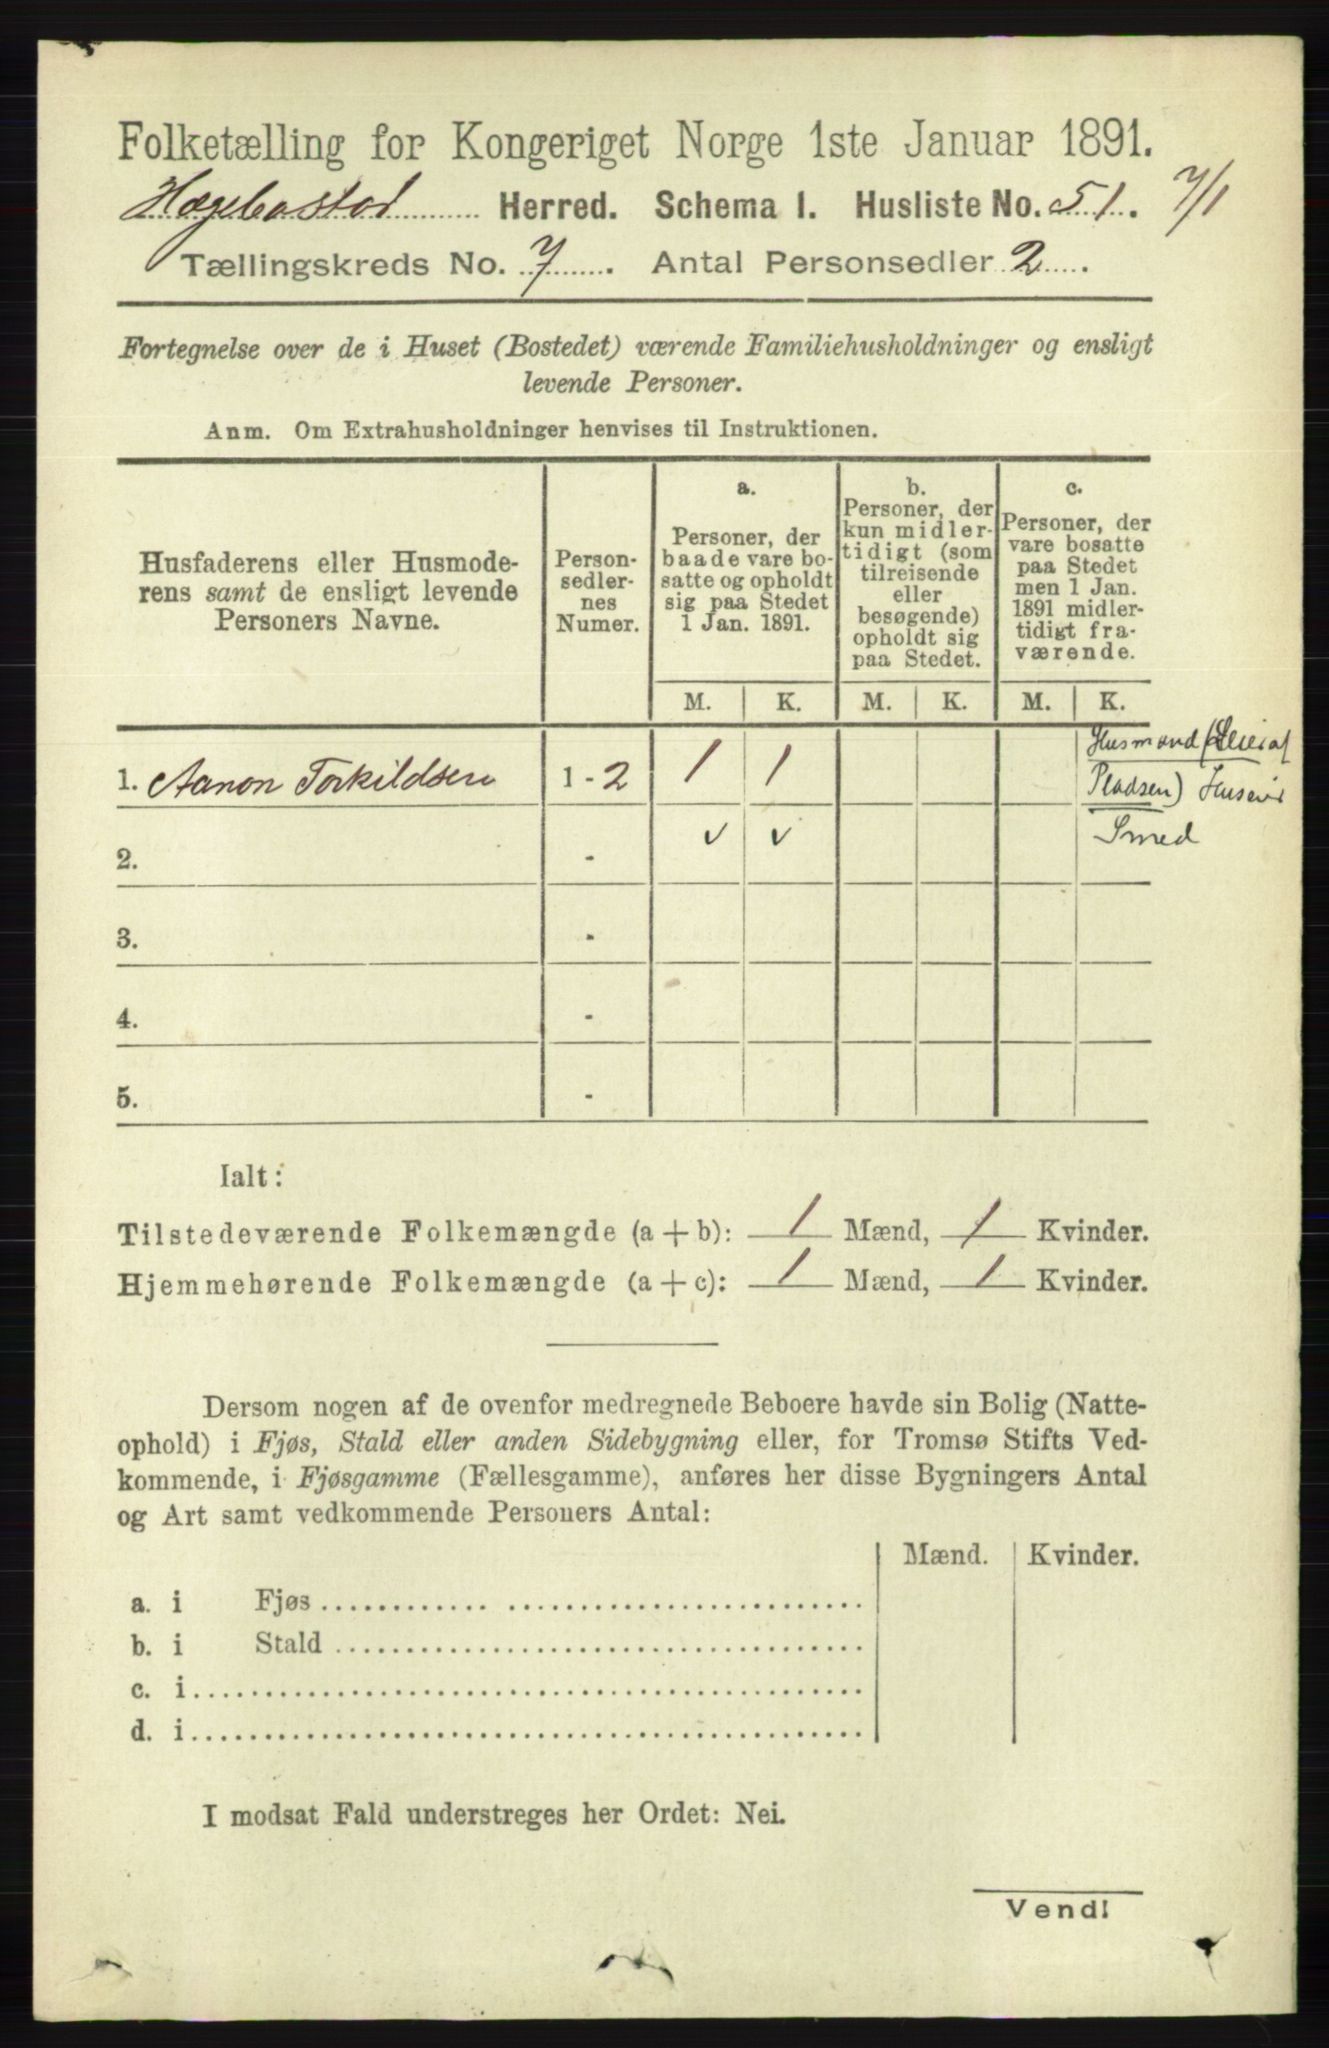 Folketælling for Kongeriget Norge 1ste Januar 1891.
Hægebostad Herred. Schema I. Husliste No. 51. 7/1
Tællingskreds No. 7. Antal Personsedler 2.
Fortegnelse over de i Huset (Bostedet) værende Familiehusholdninger og ensligt
levende Personer.
Anm. Om Extrahusholdninger henvises til Instruktionen.
Husfaderens eller Husmode-
rens samt de ensligt levende
Personers Navne.
Person-
sedler-
nes
Numer.
a.
Personer, der
baade vare bo-
satte og opholdt
sig paa Stedet
1 Jan. 1891.
b.
Personer, der
kun midler-
tidigt (som
tilreisende
eller
besøgende)
opholdt sig
paa Stedet.
c.
Personer, der
vare bosatte
paa Stedet
men 1 Jan.
1891 midler-
tidigt fra-
værende.
M. K. M. K. M. K.
1. Aanon Torkildsen 1-2 1 1
Husmand (Leier af
Pladsen) Huseier
Smed
2. - v v
3. -
4. -
5. -
Ialt:
Tilstedeværende Folkemængde (a + b): 1 Mænd, 1 Kvinder.
Hjemmehørende Folkemængde (a + c): 1 Mænd, 1 Kvinder.
Dersom nogen af de ovenfor medregnede Beboere havde sin Bolig (Natte-
ophold) i Fjøs, Stald eller anden Sidebygning eller, for Tromsø Stifts Ved-
kommende, i Fjøsgamme (Fællesgamme), anføres her disse Bygningers Antal
og Art samt vedkommende Personers Antal:
Mænd. Kvinder.
a. i Fjøs
b. i Stald
c. i
d. i
I modsat Fald understreges her Ordet: Nei.
Vend!